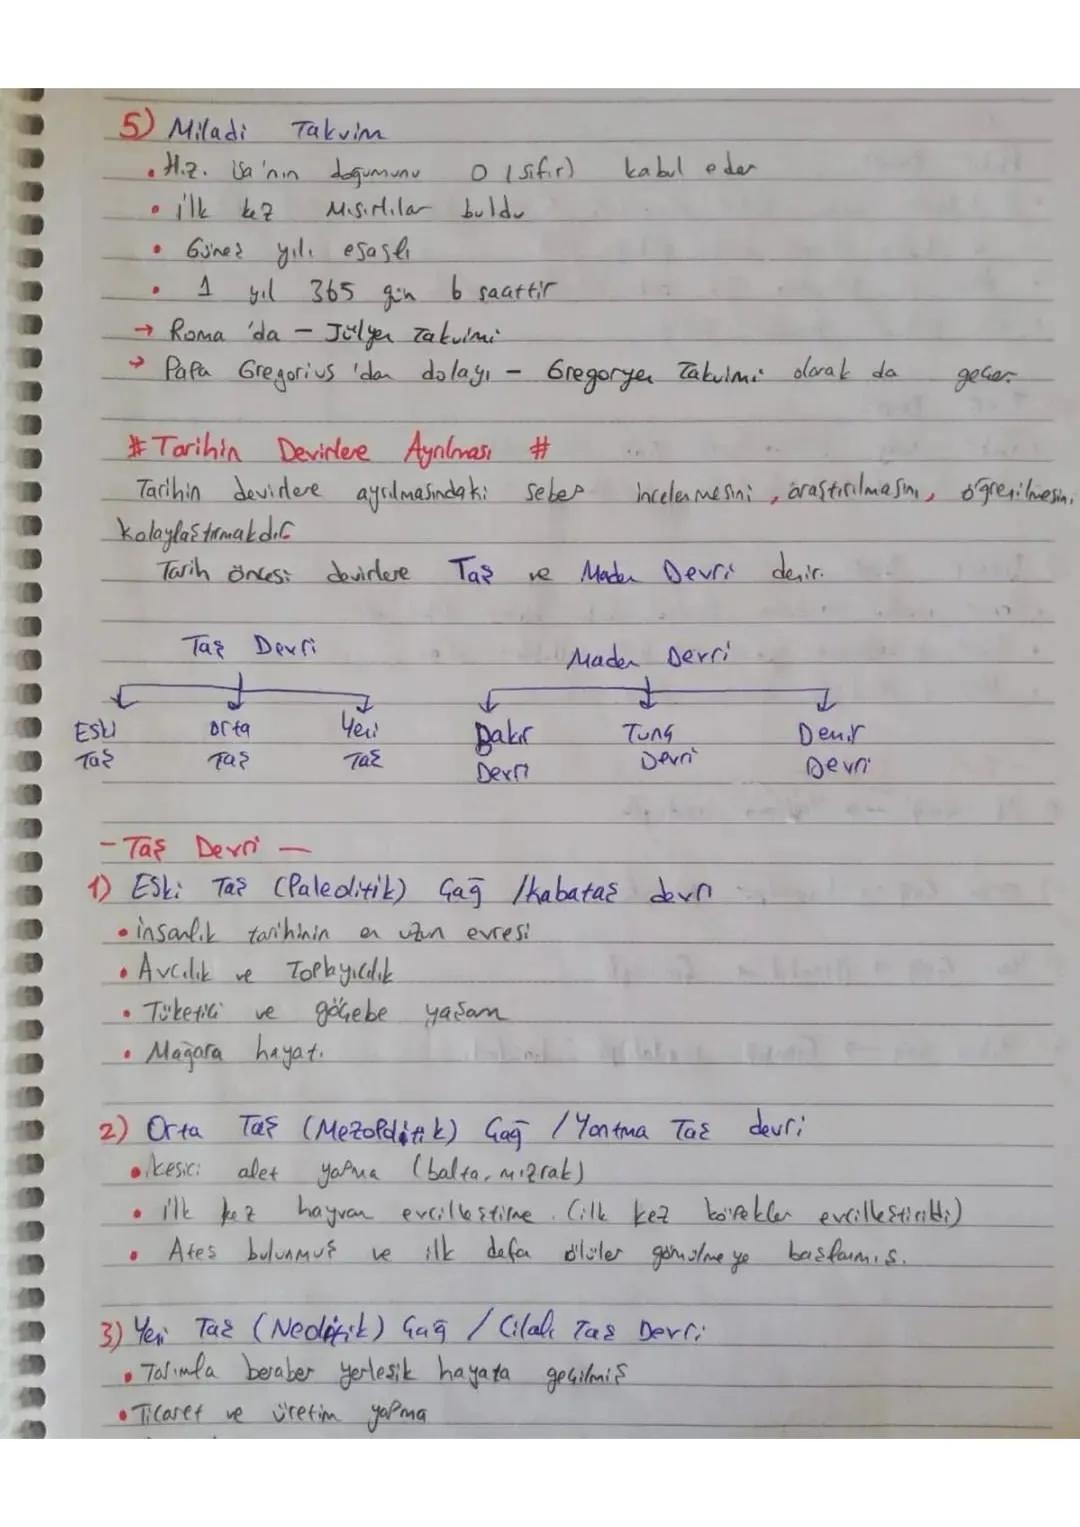 5) Miladi Takvim
• Hz. İsa'nın doğumunu 0 (sıfır) kabul eder
• ilk kez Mısırlılar buldu
• Güneş yılı esaslı
• 1 yıl 365 gün 6 saattir
→ Roma'da – Jülyen Takvimi
→ Papa Gregorius'dan dolayı – Gregoryen Takvimi olarak da geçer.
# Tarihin Devirlere Ayrılması #
Tarihin devirlere ayrılmasındaki sebep incelenmesini, araştırılmasını, öğrenilmesini
kolaylaştırmakdır
Tarih öncesi devirlere Taş ve Maden Devri denir.
Taş Devri Maden Devri
Eski Orta Yeni Bakır Tunç Demir
Taş Taş Taş Devri Devri Devri
- Taş Devri -
1) Eski Taş (Paleolitik) Çağ / kabataş devri
• insanlık tarihinin en uzun evresi
• Avcılık ve Toplayıcılık
• Tüketici ve göçebe yaşam
• Mağara hayatı
2) Orta Taş (Mezolitik) Çağ / Yontma Taş devri
• kesici alet yapma (balta, mızrak)
• ilk kez hayvan evcilleştirme. (ilk kez köpekler evcilleştirildi)
• Ateş bulunmuş ve ilk defa ölüler gömülmeye başlanmış.
3) Yeni Taş (Neolitik) Çağ / Cilalı Taş Devri
• Tarımla beraber yerleşik hayata geçilmiş
• Ticaret ve üretim yapma